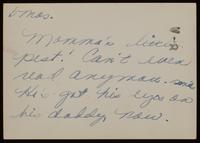 6 mos.
Momma's little
pest! Can't even
read anymore since
He's got his eyes on
his daddy, now.